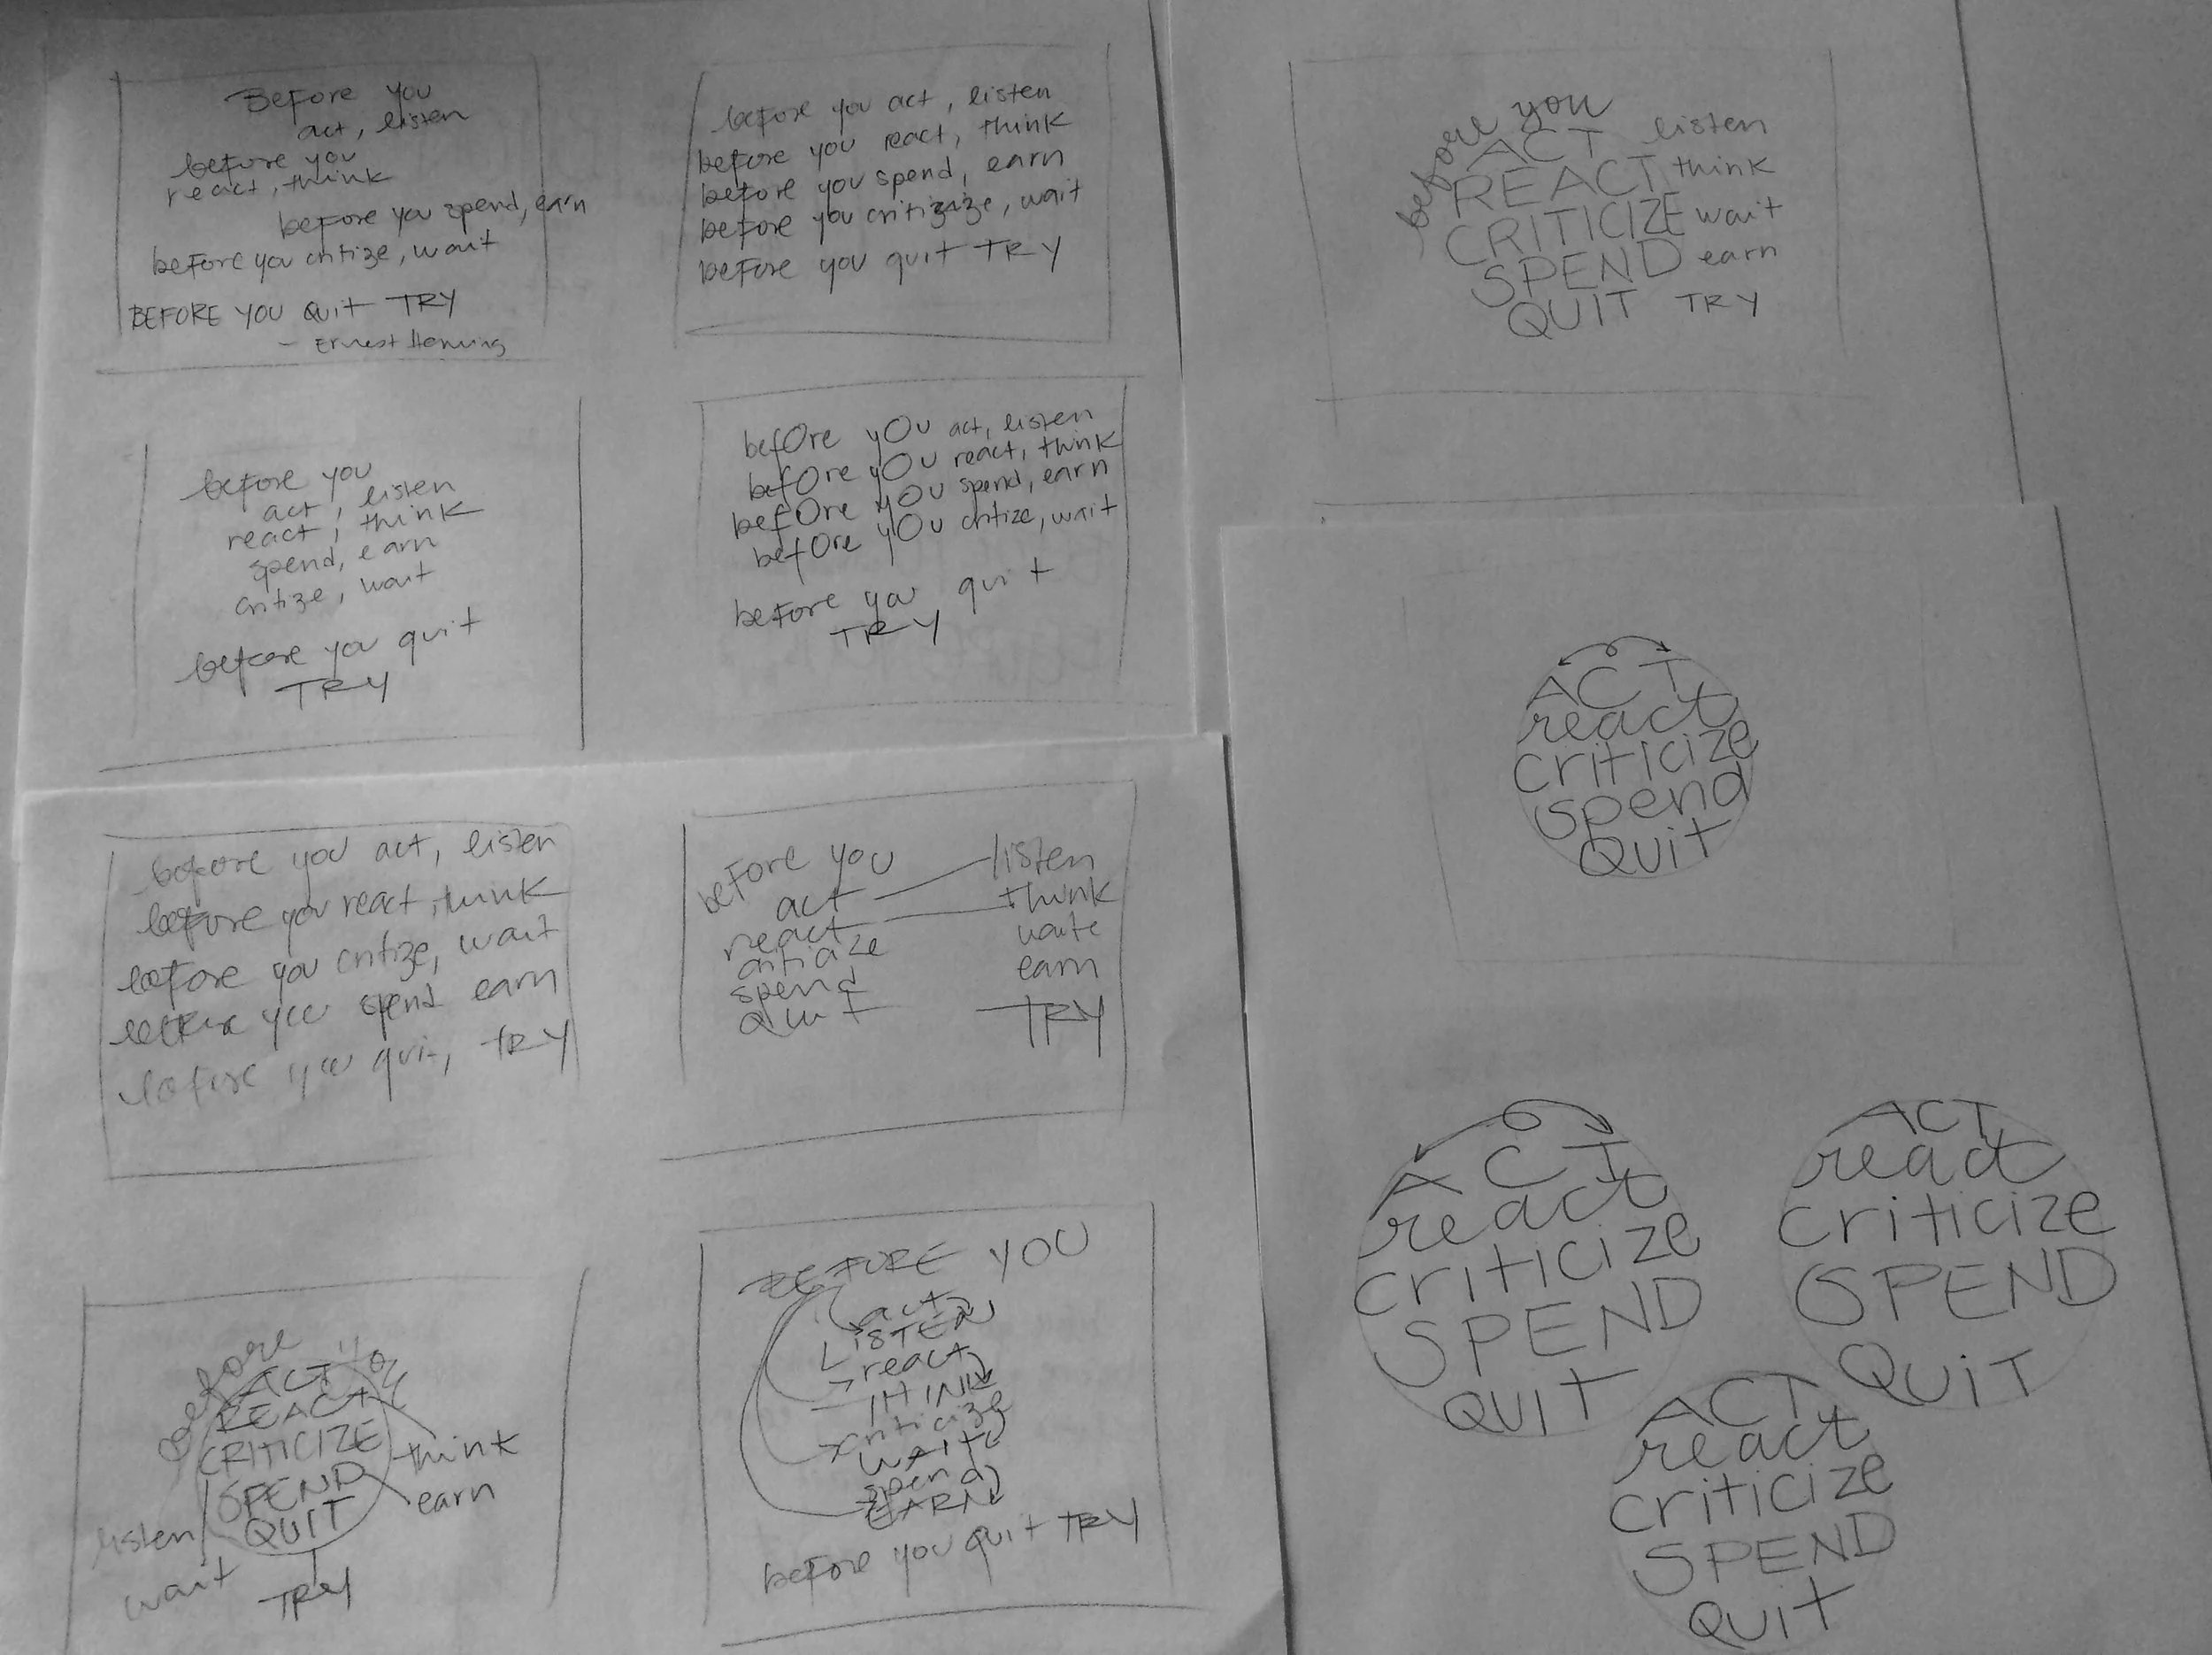 Before you
act, listen
before you
react, think
before you spend, earn
before you critize, wait
BEFORE YOU QUIT TRY
- Ernest Heming
before you act, listen
before you react, think
before you spend, earn
before you critizize, wait
before you quit TRY
before you
act, listen
react, think
spend, earn
critize, wait
before you quit
TRY
befOre yOu act, listen
befOre yOu react, think
befOre yOu spend, earn
befOre yOu critize, wait
before you quit
TRY
before you act, listen
before you react, think
before you critize, wait
before you spend earn
before you quit, TRY
before you
act listen
react think
criticize waite
spend earn
QUIT TRY
before you
ACT
REACT
CRITICIZE
SPEND
QUIT
think
earn
listen
wait
TRY
BEFORE YOU
act
LISTEN
react
THINK
criticize
WAIT
spend
EARN
before you quit TRY
before you
ACT listen
REACT think
CRITICIZE wait
SPEND earn
QUIT TRY
ACT
react
criticize
spend
QUIT
ACT
react
criticize
SPEND
QUIT
ACT
react
criticize
SPEND
QUIT
ACT
react
criticize
SPEND
QUIT